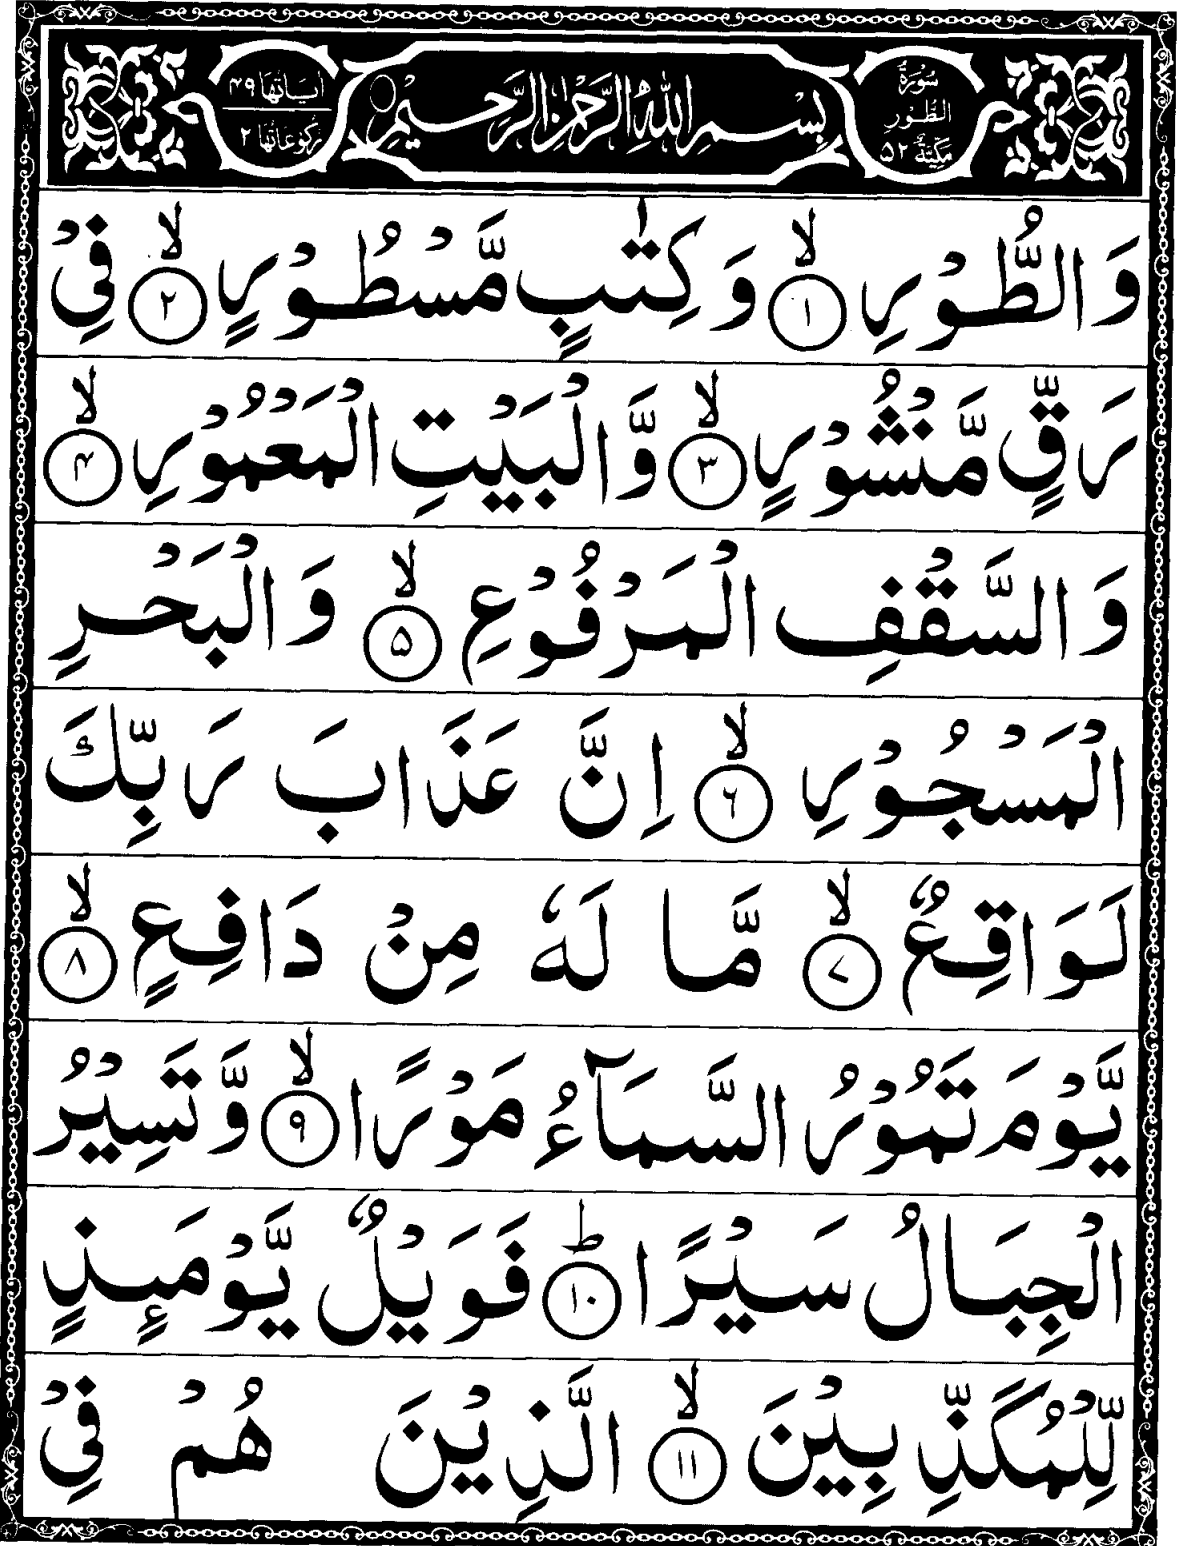 سُوْرَةُ الطُّوْرِ مَكِّيَّةٌ ۵۲
بِسْمِ اللّٰهِ الرَّحْمٰنِ الرَّحِيْمِ
اٰيَاتُهَا ۴۹
رُكُوْعَاتُهَا ۲
وَالطُّوْرِ ۙ﴿۱﴾ وَكِتٰبٍ مَّسْطُوْرٍ ۙ﴿۲﴾ فِيْ
رَقٍّ مَّنْشُوْرٍ ۙ﴿۳﴾ وَّالْبَيْتِ الْمَعْمُوْرِ ۙ﴿۴﴾
وَالسَّقْفِ الْمَرْفُوْعِ ۙ﴿۵﴾ وَالْبَحْرِ
الْمَسْجُوْرِ ۙ﴿۶﴾ اِنَّ عَذَابَ رَبِّكَ
لَوَاقِعٌ ۙ﴿۷﴾ مَّا لَهٗ مِنْ دَافِعٍ ۙ﴿۸﴾
يَّوْمَ تَمُوْرُ السَّمَآءُ مَوْرًا ۙ﴿۹﴾ وَّتَسِيْرُ
الْجِبَالُ سَيْرًا ؕ﴿۱۰﴾ فَوَيْلٌ يَّوْمَئِذٍ
لِّلْمُكَذِّبِيْنَ ۙ﴿۱۱﴾ الَّذِيْنَ هُمْ فِيْ